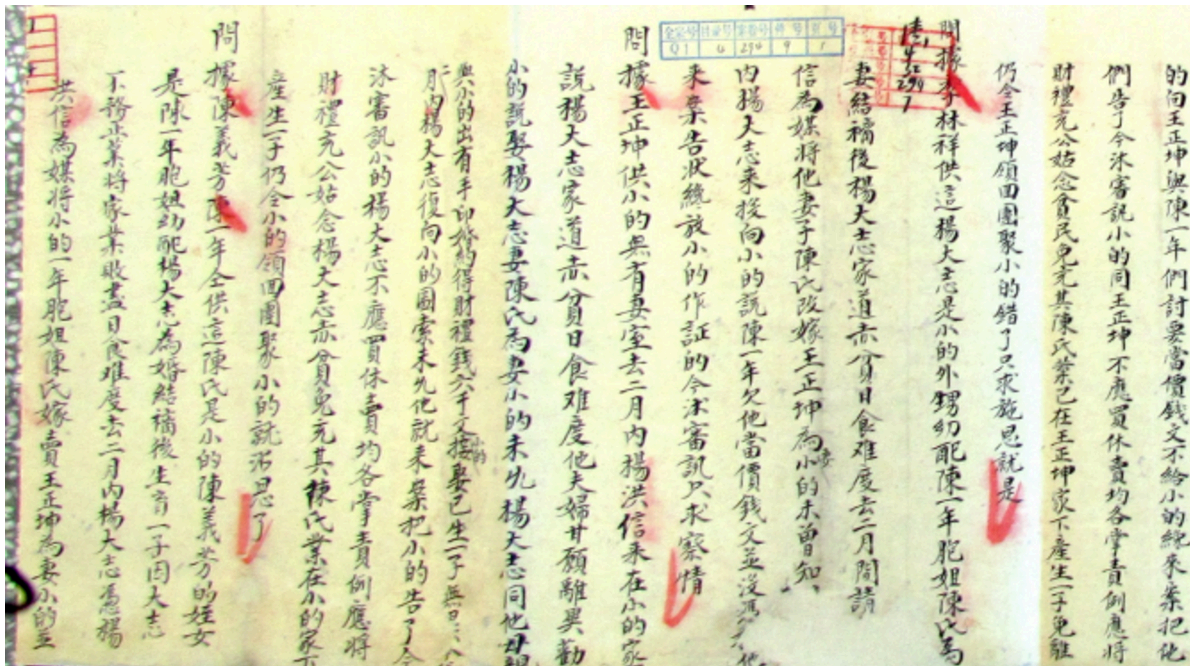 的向王正坤與陳一年們討要當價錢文不給小的纔來案把他
們告了今沐審訊小的同王正坤不應買休賣均各掌責例應將
財禮充公姑念貧民免充其陳氏業已在王正坤家下產生一子免離
仍令王正坤領回團聚小的錯了只求施恩就是
問據李林祥供這楊大志是小的外甥幼配陳一年胞姐陳氏為
妻結褵後楊大志家道赤貧日食难度去二月間請
信為媒將他妻子陳氏改嫁王正坤為妻小的未曾知
內楊大志来投向小的説陳一年欠他當價錢文並沒
来案告狀縂放小的作証的今沐審訊只求察情
問據王正坤供小的無有妻室去二月內楊洪信来在小的家
說楊大志家道赤貧日食难度他夫婦甘願離異勸
小的説娶楊大志妻陳氏為妻小的未允楊大志同他母親
與小的出有手印婚約得財禮錢六千文小的接娶已生一子無
月內楊大志復向小的圖索未允他就来案把小的告了今
沐審訊小的楊大志不應買休賣均各掌責例應將
財禮充公姑念楊大志赤貧免充其陳氏業在小的家下
產生一子仍令小的領回團聚小的就沾恩了
問據陳義芳陳一年仝供這陳氏是小的陳義芳的姪女
是陳一年胞姐幼配楊大志為婚結褵後生育一子因大志
不務正業將家業敗盡日食难度去二月內楊大志憑楊
洪信為媒將小的一年胞姐陳氏嫁賣王正坤為妻小的並
全宗号 目录号 案卷号 件号 頁号
Q1 4 294 9 1